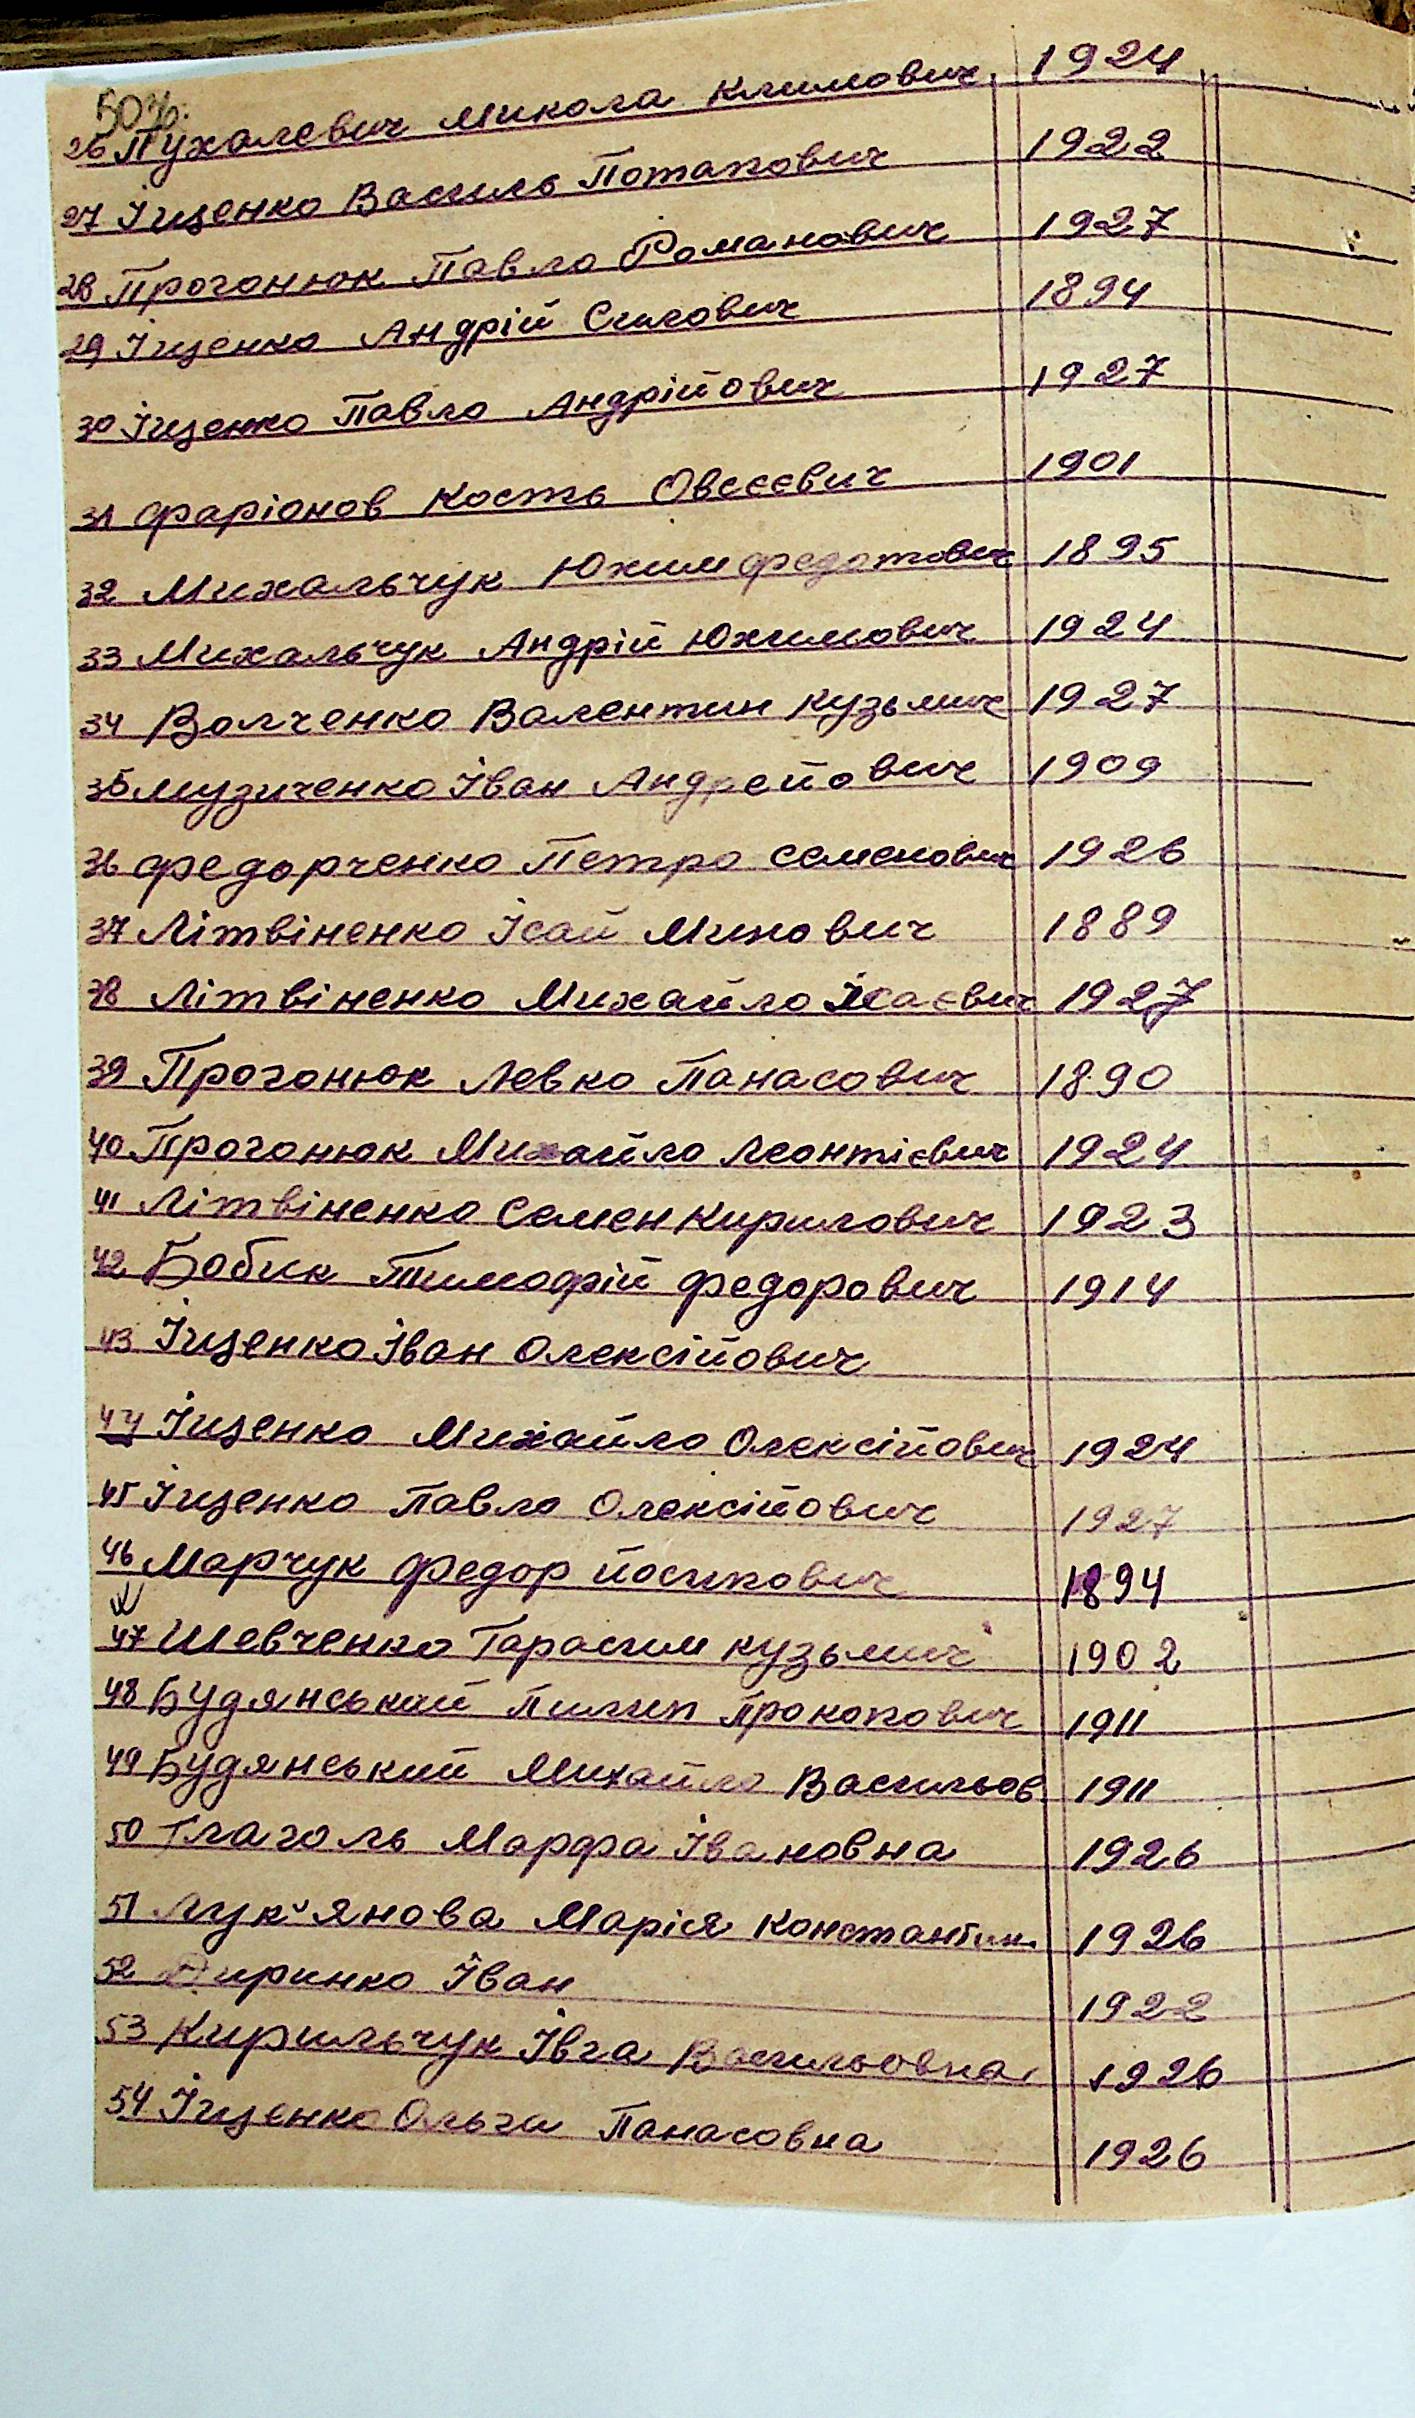 50 зв.
26 Пухалевич Микола Климович. 1924
27 Іщенко Василь Потапович 1922
28 Прогонюк Павло Романович 1927
29 Іщенко Андрій Силович 1894
30 Іщенко Павло Андрійович 1927
31 Фаріонов Кость Овсєєвич 1901
32 Михальчук Юхим Федотович 1895
33 Михальчук Андрій Юхимович 1924
34 Волченко Валентин Кузьмич 1927
35 Музиченко Іван Андрейович 1909
36 Федорченко Петро Семенович 1926
37 Літвіненко Ісай Минович 1889
38 Літвіненко Михайло Ісаєвич 1927
39 Прогонюк Левко Панасович 1890
40 Прогонюк Михайло Леонтієвич 1924
41 Літвіненко Семен Кирилович 1923
42 Бобик Тимофій Федорович 1914
43 Іщенко Іван Олексійович
44 Іщенко Михайло Олексійович 1924
45 Іщенко Павло Олексійович 1927
46 Марчук Федор Йосипович 1894
47 Шевченко Гарасим Кузьмич 1902
48 Будянський Пилип Прокопович 1911
49 Будянський Михайло Васильов. 1911
50 Глаголь Марфа Івановна 1926
51 Лук'янова Марія Константин. 1926
52 Іван 1922
53 Кирильчук Івга Васильовна 1926
54 Іщенко Ольга Панасовна 1926